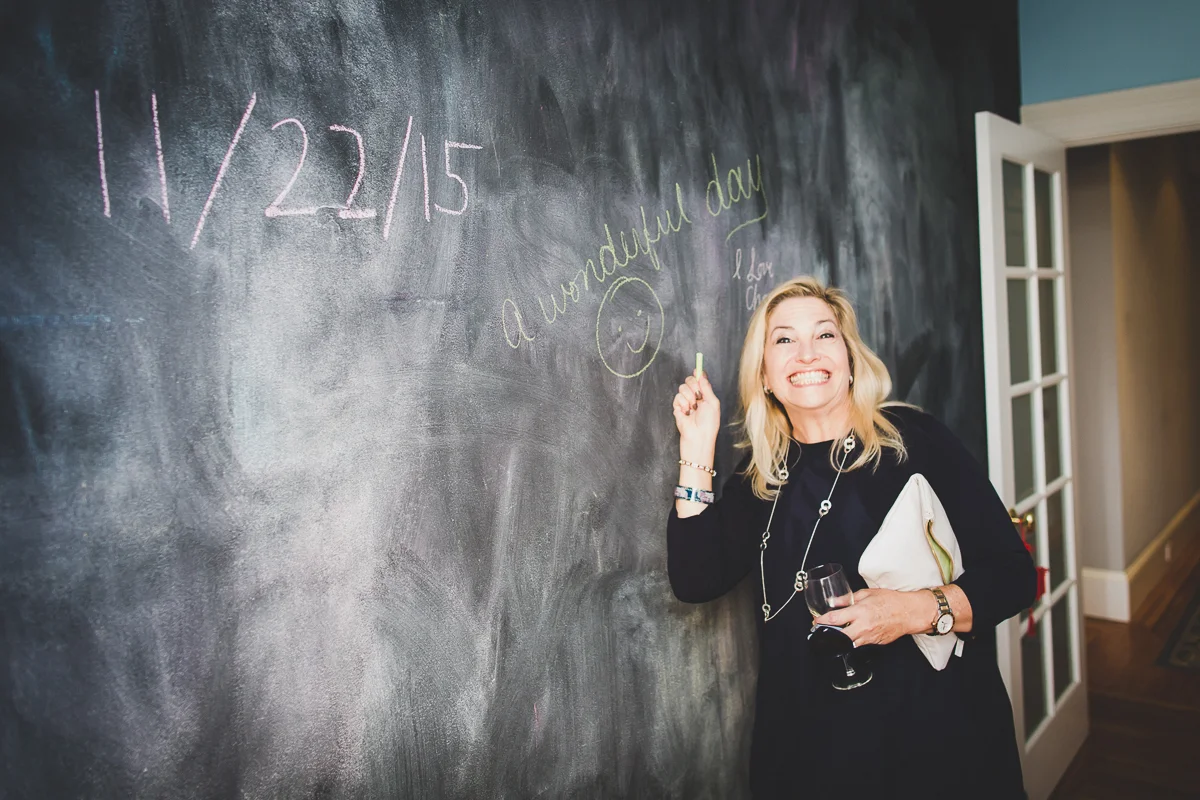 11/22/15
a wonderful day
I Love